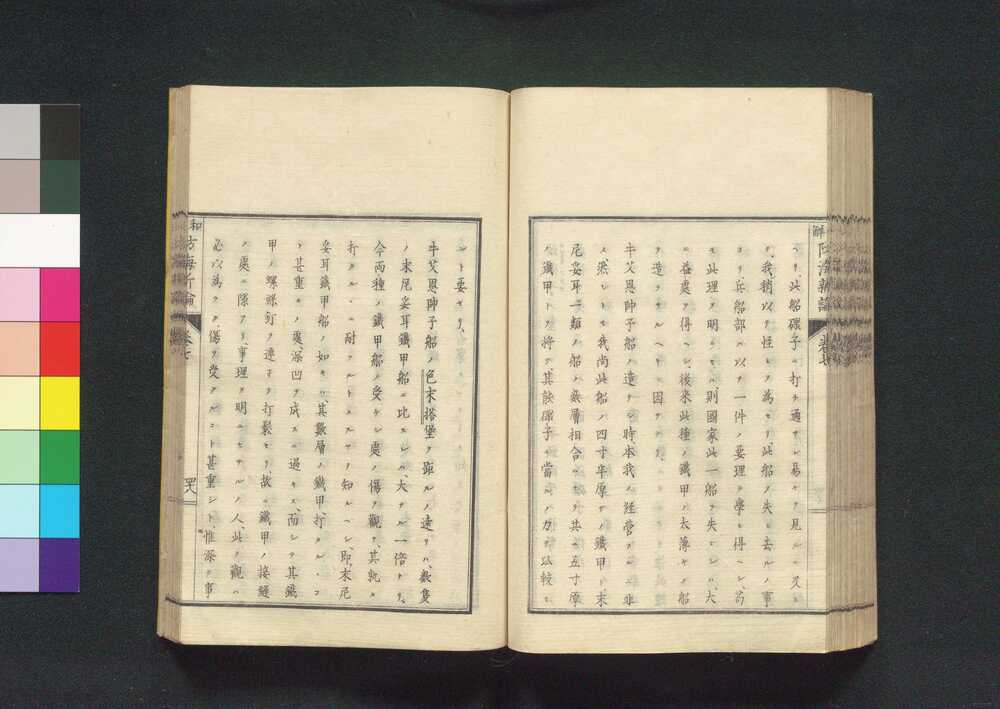 セリ、此船礮子ノ打チ通サレ易キヲ見ルニ又
タ我、稍以テ怪ト為セリ、此船ヲ失ヒ去ルノ事
ヨリ、兵船部、以テ一件ノ要理ヲ學ヒ得ヘシ、苟
モ此理ヲ明ニセハ、則國家此一船ヲ失ヒシハ、大
益處ヲ得ヘシ、後來此種ノ鐵甲ノ太薄キノ船
ヲ造ラサルヘキニ因テナリ、
牛艾恩帥子船ヲ造リシ時、本我ノ經營ニ非
ス、然レトモ我尚此船ノ四寸半厚サノ鐵甲ト、末
尼妥耳一類ノ船ノ數層相合シテ、共ニ五寸厚
ノ鐵甲トヲ將テ、其銕彈子ニ當ルノ力ヲ以較セ
ルヲ要セリ、
牛艾恩帥子船ノ色末搭堡ヲ距ルノ遠サハ、數隻
ノ末尼妥耳鐵甲船ニ比スレハ、大ナル一倍ナリ、
今兩種ノ鐵甲船ノ受ケシ處ノ傷ヲ觀テ、其孰カ
打タルヽニ耐フルトスルヤヲ知ルヘシ、即、末尼
妥耳鐵甲船ノ如キハ、其數層ノ鐵甲、打タルヽコ
ト甚重キノ處、深凹ヲ成スニ過キス、而シテ其鐵
甲ノ螺絲釘ヲ連子テ打鬆セリ、故ニ鐵甲ノ接縫
ノ處ニ隙アリ、事理ヲ明ニセサルノ人、此ヲ觀ハ
必以為ラク、傷ヲ受クルコト甚重シト、惟深ク事
和
防海新論
卷七